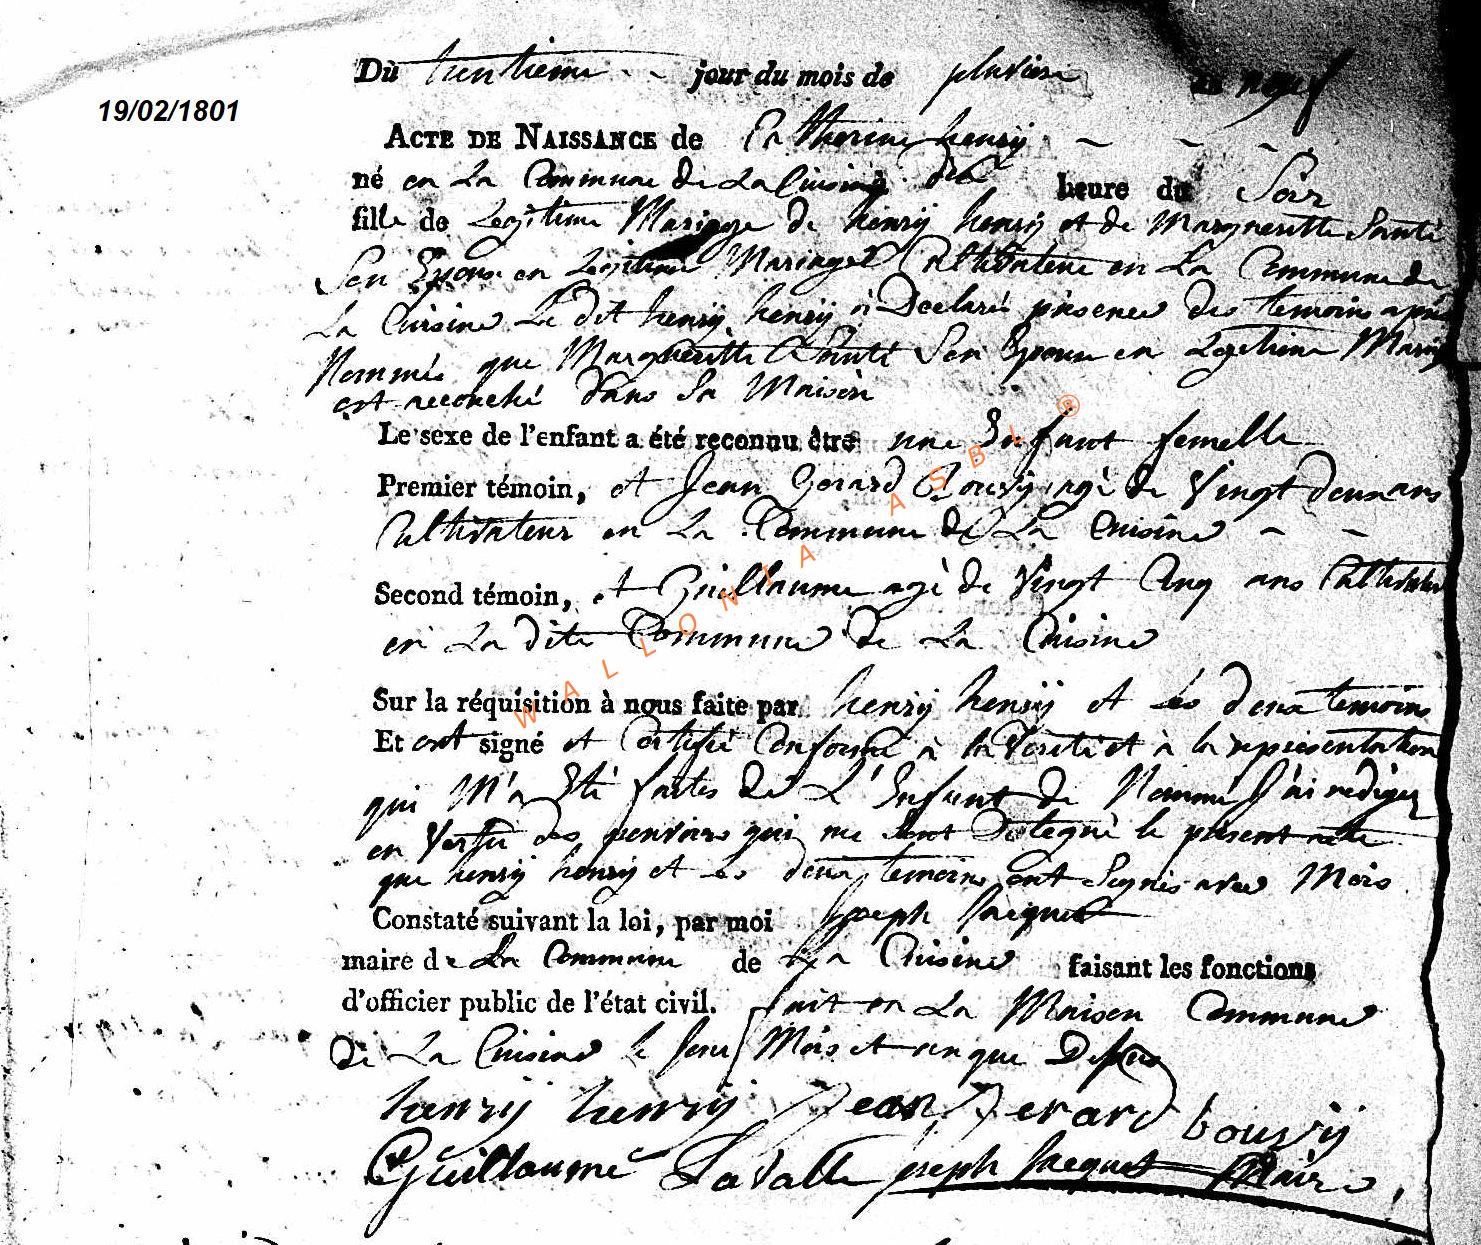 Du trentieme jour du mois de pluviose an neuf
19/02/1801
ACTE DE NAISSANCE de Catherine henrÿ
né en La Commune de La Cuisine dix heure du Soir
fille de Legitime Mariage de henrÿ henrÿ et de Margueritte Santé
Son Epouse en Legitime Mariage Cultivateur en La Commune de
La Cuisine Le dit henrÿ henrÿ à Declaré présence des temoins après
Nommés que Margueritte Santé Son Epouse en Legitime Mariage
est accouché dans Sa Maison
Le sexe de l'enfant a été reconnu être une Enfant femelle
Premier témoin, et Jean Gerard Bourÿ agé de Vingt deux ans
Cultivateur en La Commune de La Cuisine
Second témoin, et Guillaume agé de Vingt Cinq ans Cultivateur
en La dite Commune de La Cuisine
Sur la réquisition à nous faite par henrÿ henrÿ et Les deux temoins
Et ont signé et Certifié Conforme à la Verité et à la representation
qui M'a Eté faites de L'Enfant de Nommé J'ai rediger
en Vertu des pouvoirs qui me Sont Delegué le présent acte
que henrÿ henrÿ et Les deux temoins ont Signés avec Mois
Constaté suivant la loi, par moi Joseph Jacquet
maire de La Commune de La Cuisine faisant les fonctions
d'officier public de l'état civil. fait en La Maison Commune
de La Cuisine le Jour Mois et an que Dessus
henrÿ henrÿ Jean Gerard bourÿ
Guillaume Lavalle Joseph Jacquet Maire
WALLONIA ASBL ®